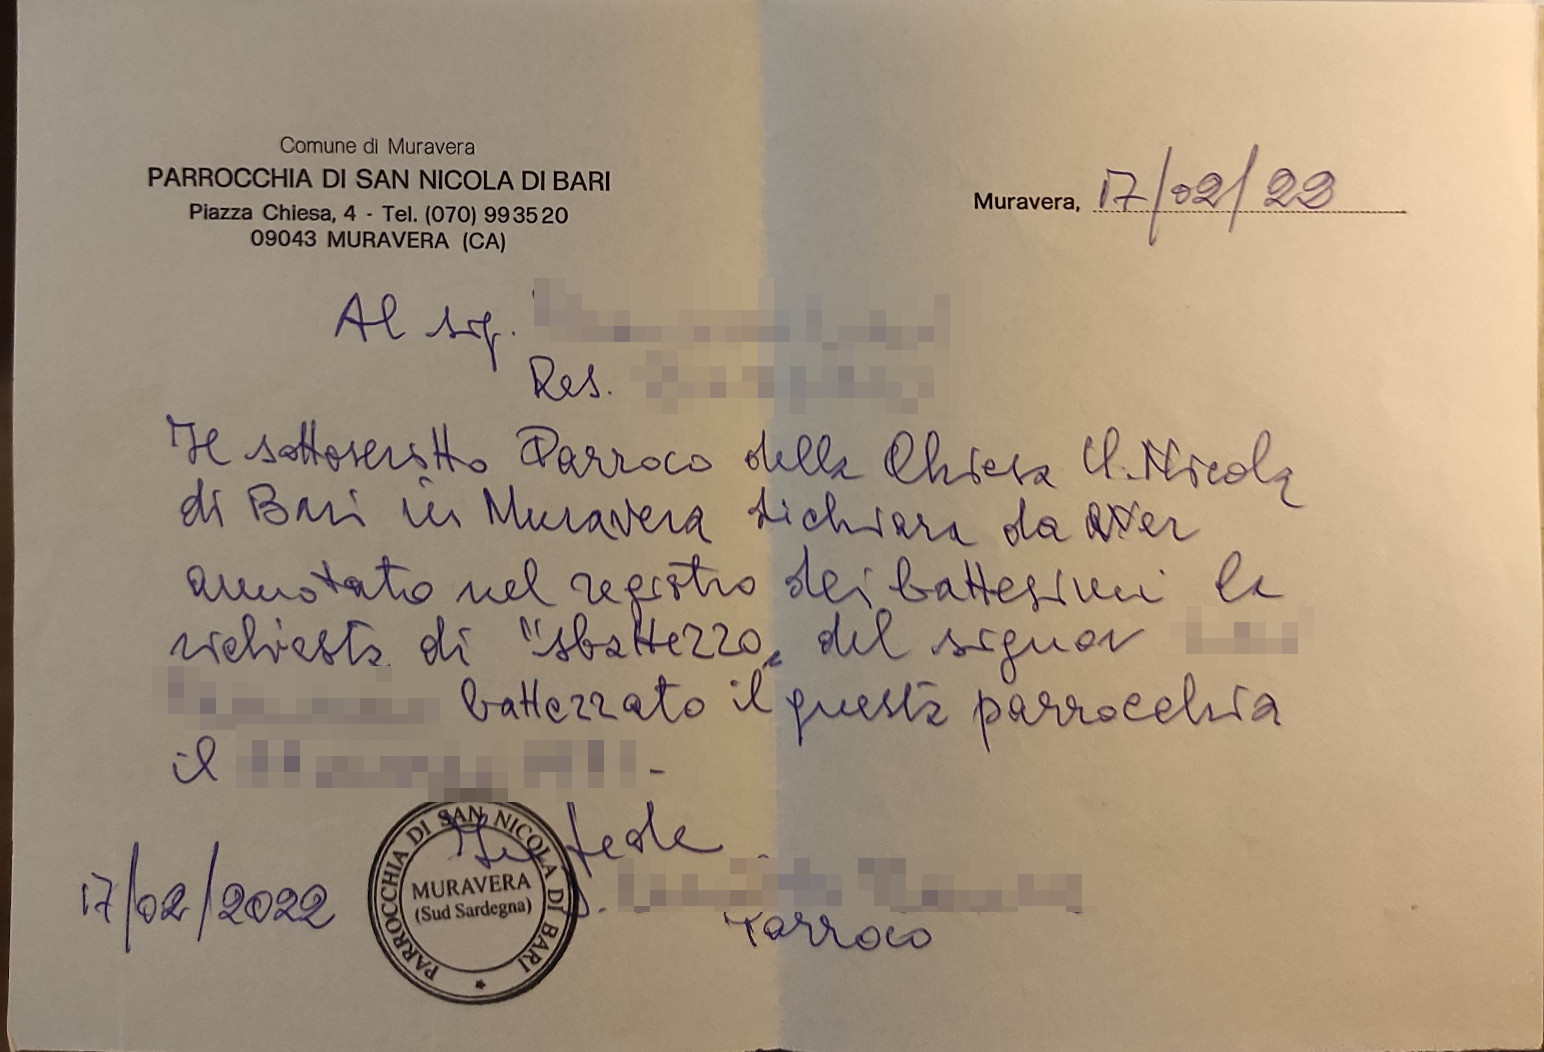 Comune di Muravera
PARROCCHIA DI SAN NICOLA DI BARI
Piazza Chiesa, 4 - Tel. (070) 993520
09043 MURAVERA (CA)
Muravera, 17/02/22
Al sig.
Res.
Il sottoscritto Parroco della Chiesa S. Nicola
di Bari in Muravera dichiara da aver
annotato nel registro dei battesimi la
richiesta di "sbattezzo" del signor
battezzato il questa parrocchia
il -
In fede
17/02/2022
PARROCCHIA DI SAN NICOLA DI BARI
MURAVERA
(Sud Sardegna)
D.
Parroco